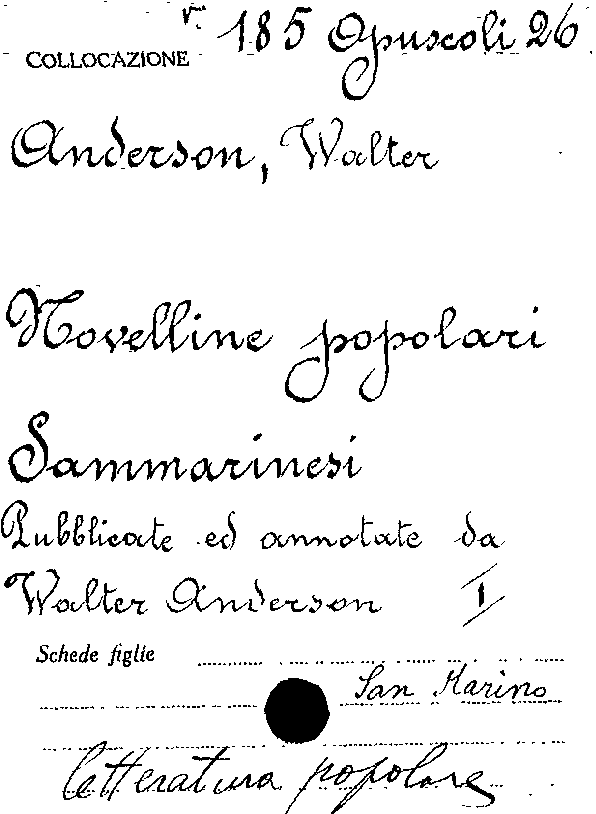 v. 185 Opuscoli 26
COLLOCAZIONE
Anderson, Walter
Novelline popolari
Sammarinesi
Pubblicate ed annotate da
Walter Anderson I
Schede figlie
San Marino
letteratura popolare